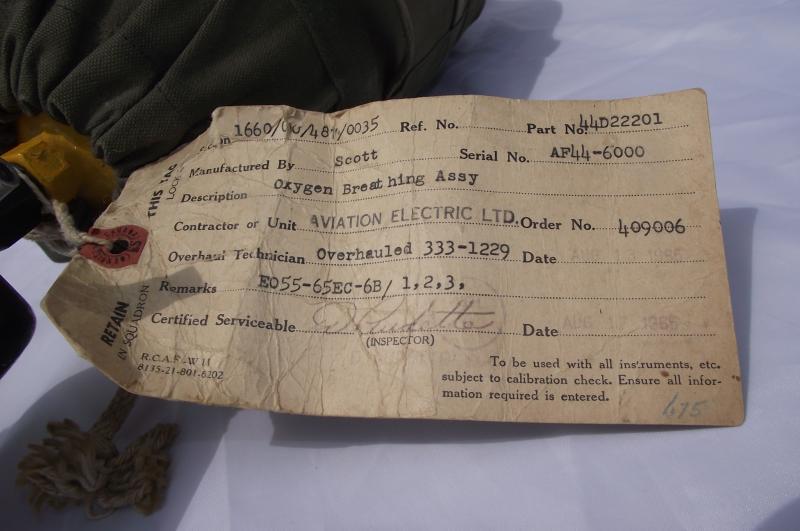 1660/00/481/0035 Ref. No. Part No. 44D22201
Manufactured By Scott Serial No. AF44-6000
Description Oxygen Breathing Assy
Contractor or Unit AVIATION ELECTRIC LTD. Order No. 409006
Overhaul Technician Overhauled 333-1229 Date AUG 1965
Remarks EO55-65EC-6B/ 1,2,3,
Certified Serviceable Date AUG 1965
(INSPECTOR)
To be used with all instruments, etc.
subject to calibration check. Ensure all infor-
mation required is entered.
675
THIS TAG
RETAIN
IN SQUADRON
R.C.A.F.
8135-21-801-6202